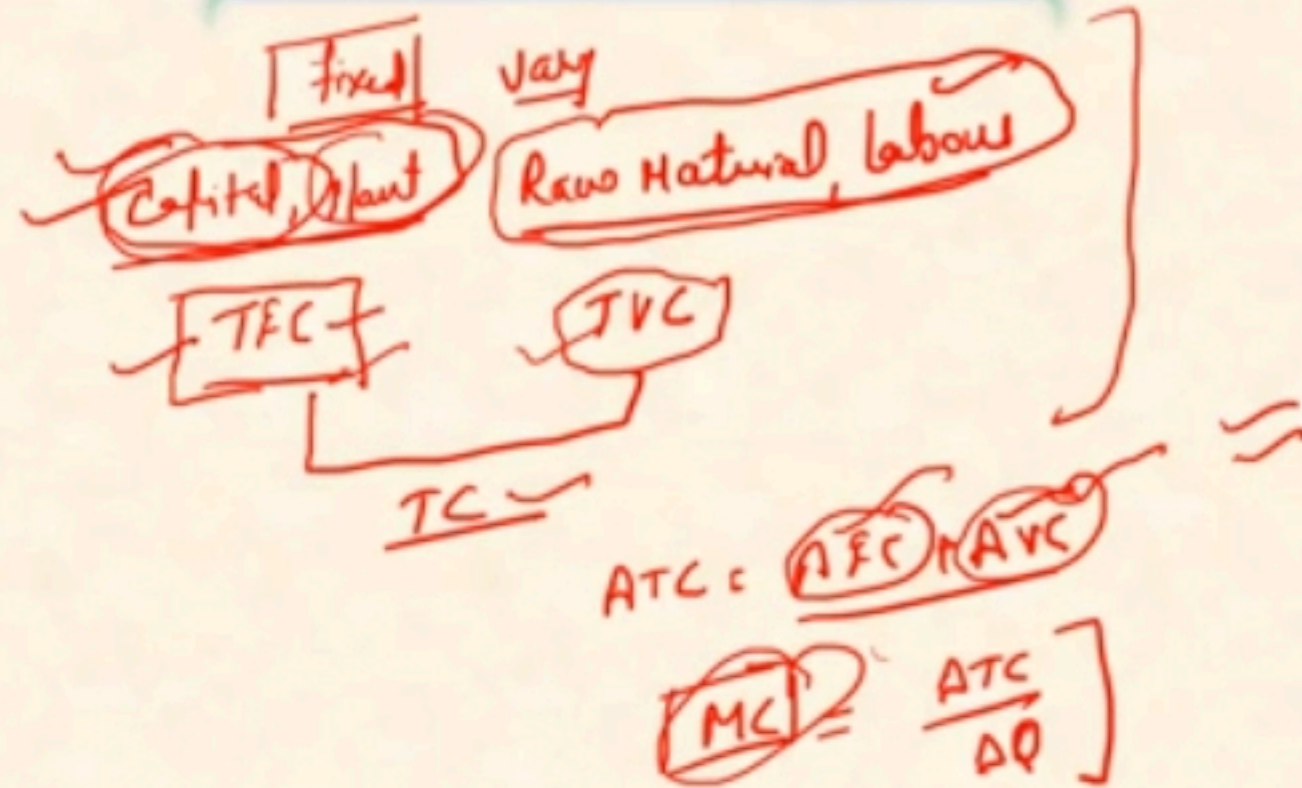 Fixed Vary
Capital, Plant Raw Material, Labour
TFC TVC
TC
ATC = AFC + AVC
MC = ΔTC
ΔQ